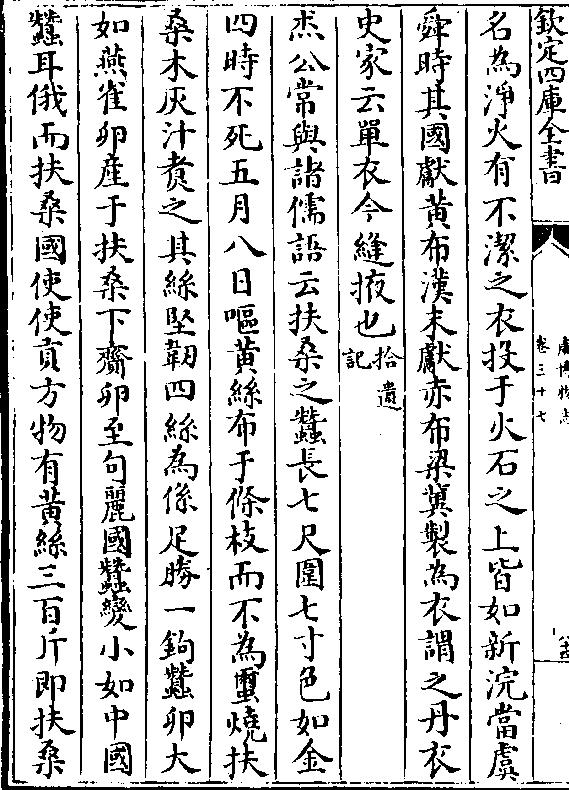 欽定四庫全書
廣博物志
卷三十七
名為淨火有不潔之衣投于火石之上皆如新浣當虞
舜時其國獻黃布漢末獻赤布梁冀製為衣謂之丹衣
史家云單衣今縫掖也拾遺記
杰公常與諸儒語云扶桑之蠶長七尺圍七寸色如金
四時不死五月八日嘔黃絲布于條枝而不為䌖燒扶
桑木灰汁煑之其絲堅韌四絲為係足勝一鈞蠶卵大
如燕雀卵產于扶桑下齎卵至句麗國蠶變小如中國
蠶耳俄而扶桑國使使貢方物有黃絲三百斤即扶桑